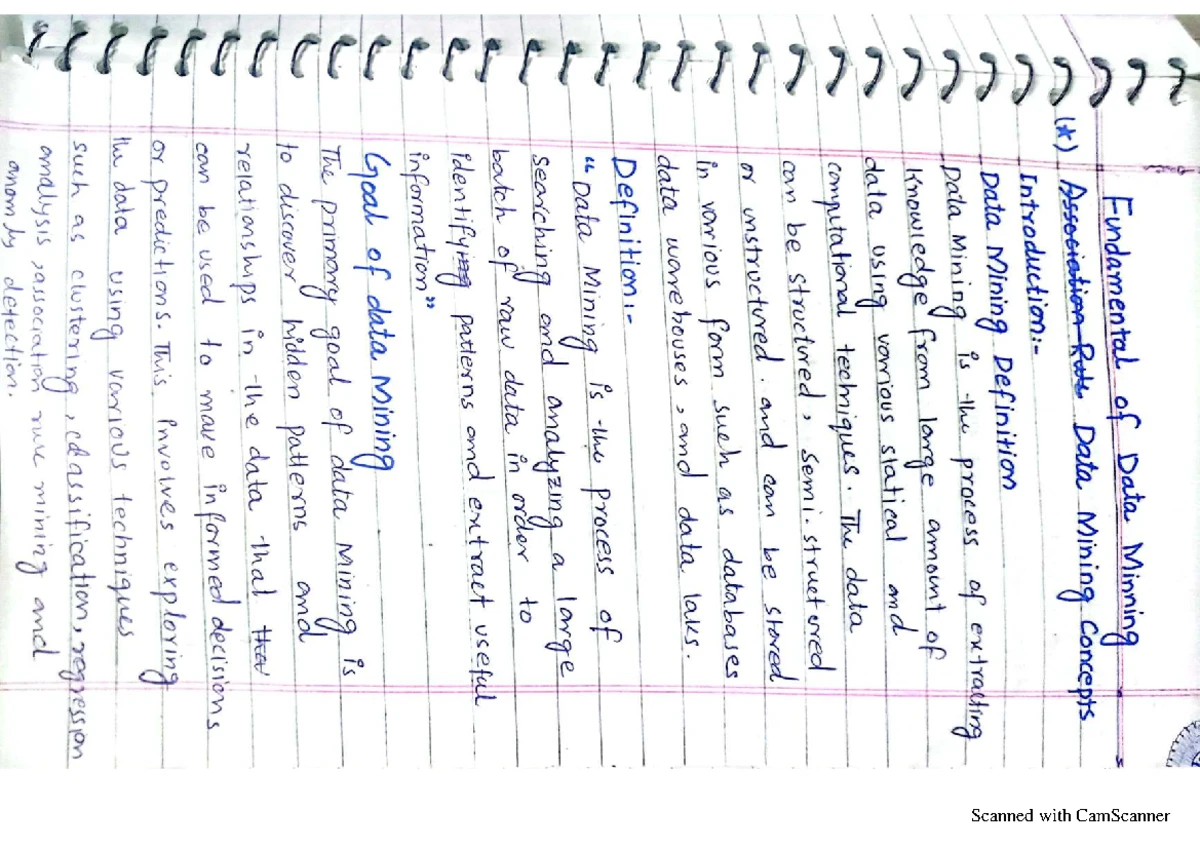 Fundamental of Data Minning
(*) Association Rule Data Mining Concepts
Introduction:-
Data Mining Definition
Data Mining is the process of extracting
knowledge from large amount of
data using various statical and
computational techniques. The data
can be structured, semi-structered
or unstructured. and can be stored
in various form such as databases
data warehouses, and data laks.
Definition:-
"Data Mining is the process of
searching and analyzing a large
batch of raw data in order to
identifying patterns and extract useful
information"
Goal of data Mining
The primary goal of data Mining is
to discover hidden patterns and
relationships in the data that that
can be used to make informed decisions
or predictions. This involves exploring
the data using various techniques
such as clustering, classification, regression
analysis, association rule mining and
anomly detection.
Scanned with CamScanner